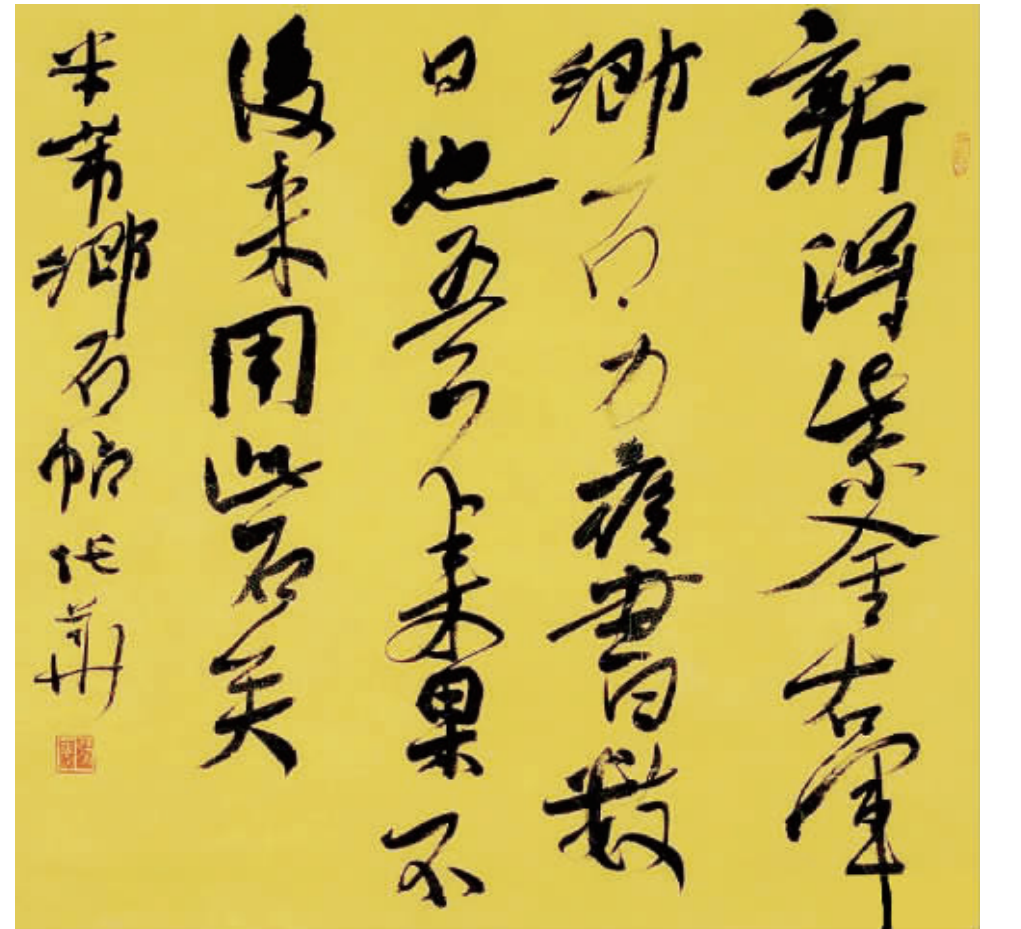 新得紫金右軍
鄉石力疾書數
日也吾不来果不
復来用此石矣
米芾鄉石帖